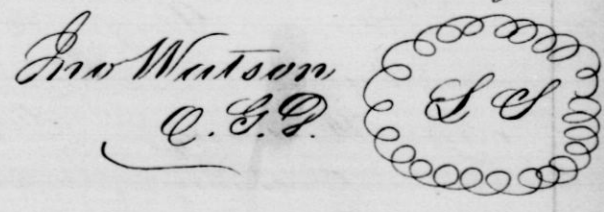 Jno Watson
C. G. D.
L S